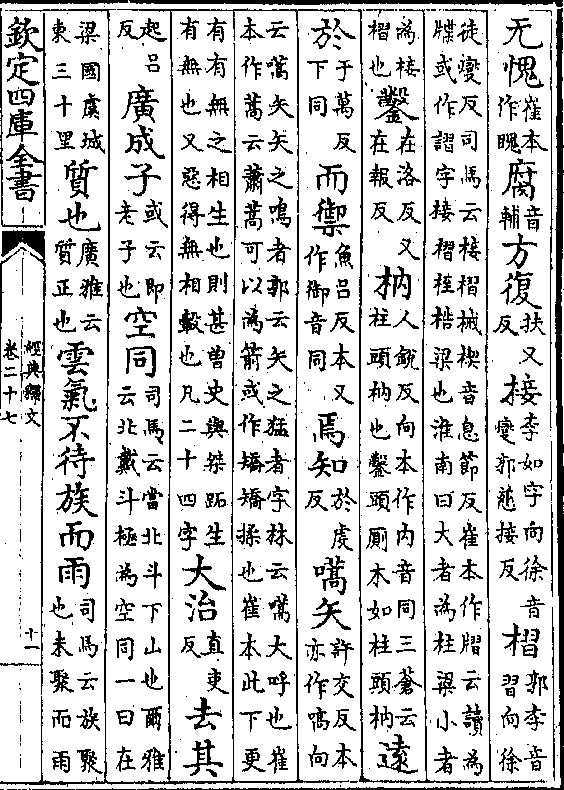 无愧崔本作聭腐音輔方復扶又反接李如字向徐音燮郭慈接反槢郭李音習向徐
徒燮反司馬云接槢械楔音息節反崔本作熠云讀為牒或作謵字接槢桎梏梁也淮南曰大者為柱梁小者
為接槢也鑿在洛反又在報反枘人銳反向本作内音同三蒼云柱頭枘也鑿頭厠木如柱頭枘遠
於于萬反下同而禦魚吕反本又作御音同焉知於虔反嚆矢許交反本亦作嗃向
云嚆矢矢之鳴者郭云矢之猛者字林云嚆大呼也崔本作蒿云蕭蒿可以為箭或作矯矯揉也崔本此下更
有有無之相生也則甚曾史與桀跖生有無也又惡得無相轂也凡二十四字大治直吏反去其
起吕反廣成子或云即老子也空同司馬云當北斗下山也爾雅云北戴斗極為空同一曰在
梁國虞城東三十里質也廣雅云質正也雲氣不待族而雨司馬云族聚也未聚而雨
欽定四庫全書
經典釋文
卷二十七
十一